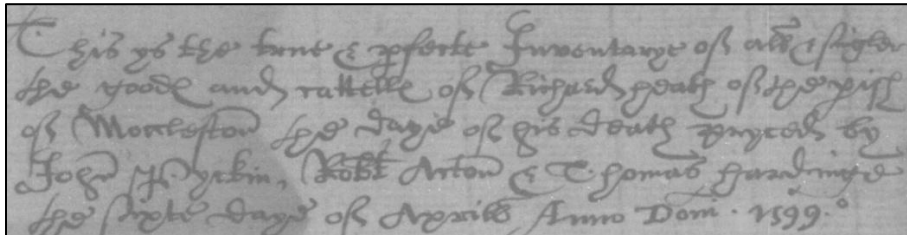 This ys the true & pfecte Inventarye of all & singler
the goods and cattells of Richard heath of the pish
of Moccleston the daye of his death prysed by
John Pyckin, Robt Acton & Thomas hardinge
the sixte daye of Aprill Anno Dom. 1599.